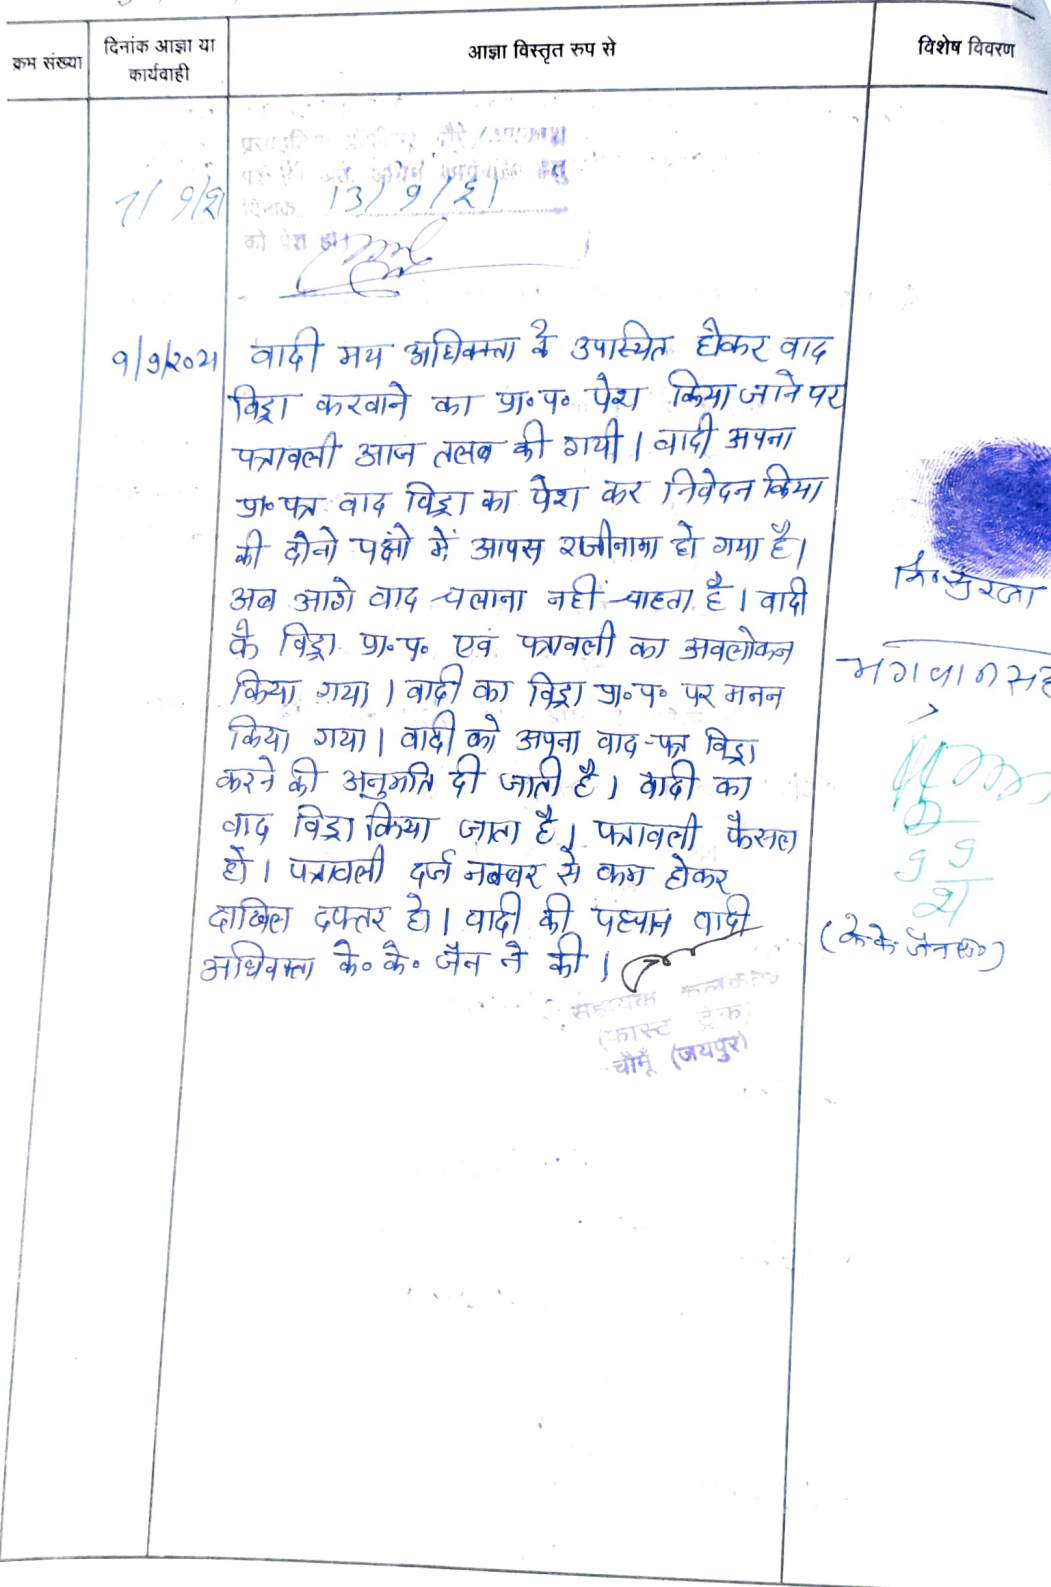 क्रम संख्या
दिनांक आज्ञा या
कार्यवाही
आज्ञा विस्तृत रुप से
विशेष विवरण
7/9/21
दिनांक 13/9/21
को पेश हो।
9/9/2021 वादी मय अधिवक्ता के उपास्थित होकर वाद
विड्रा करवाने का प्रा॰प॰ पेश किया जाने पर
पत्रावली आज तलब की गयी। वादी अपना
प्रा॰पत्र वाद विड्रा का पेश कर निवेदन किया
की दोनो पक्षो में आपस राजीनामा हो गया है।
अब आगे वाद चलाना नहीं चाहता है। वादी
के विड्रा प्रा॰प॰ एवं पत्रावली का अवलोकन
किया गया। वादी का विड्रा प्रा॰प॰ पर मनन
किया गया। वादी को अपना वाद-पत्र विड्रा
करने की अनुमति दी जाती है। वादी का
वाद विड्रा किया जाता है। पत्रावली फैसल
हो। पत्रावली दर्ज नम्बर से कम होकर
दाखिल दफ्तर हो। वादी की पहचान वादी
अधिवक्ता के॰ के॰ जैन ने की।
सहायक कलक्टर
(फास्ट ट्रेक)
चौमूँ (जयपुर)
नि॰ सुरजा
भगवान सह
9 9
21
(के के जैन एड॰)